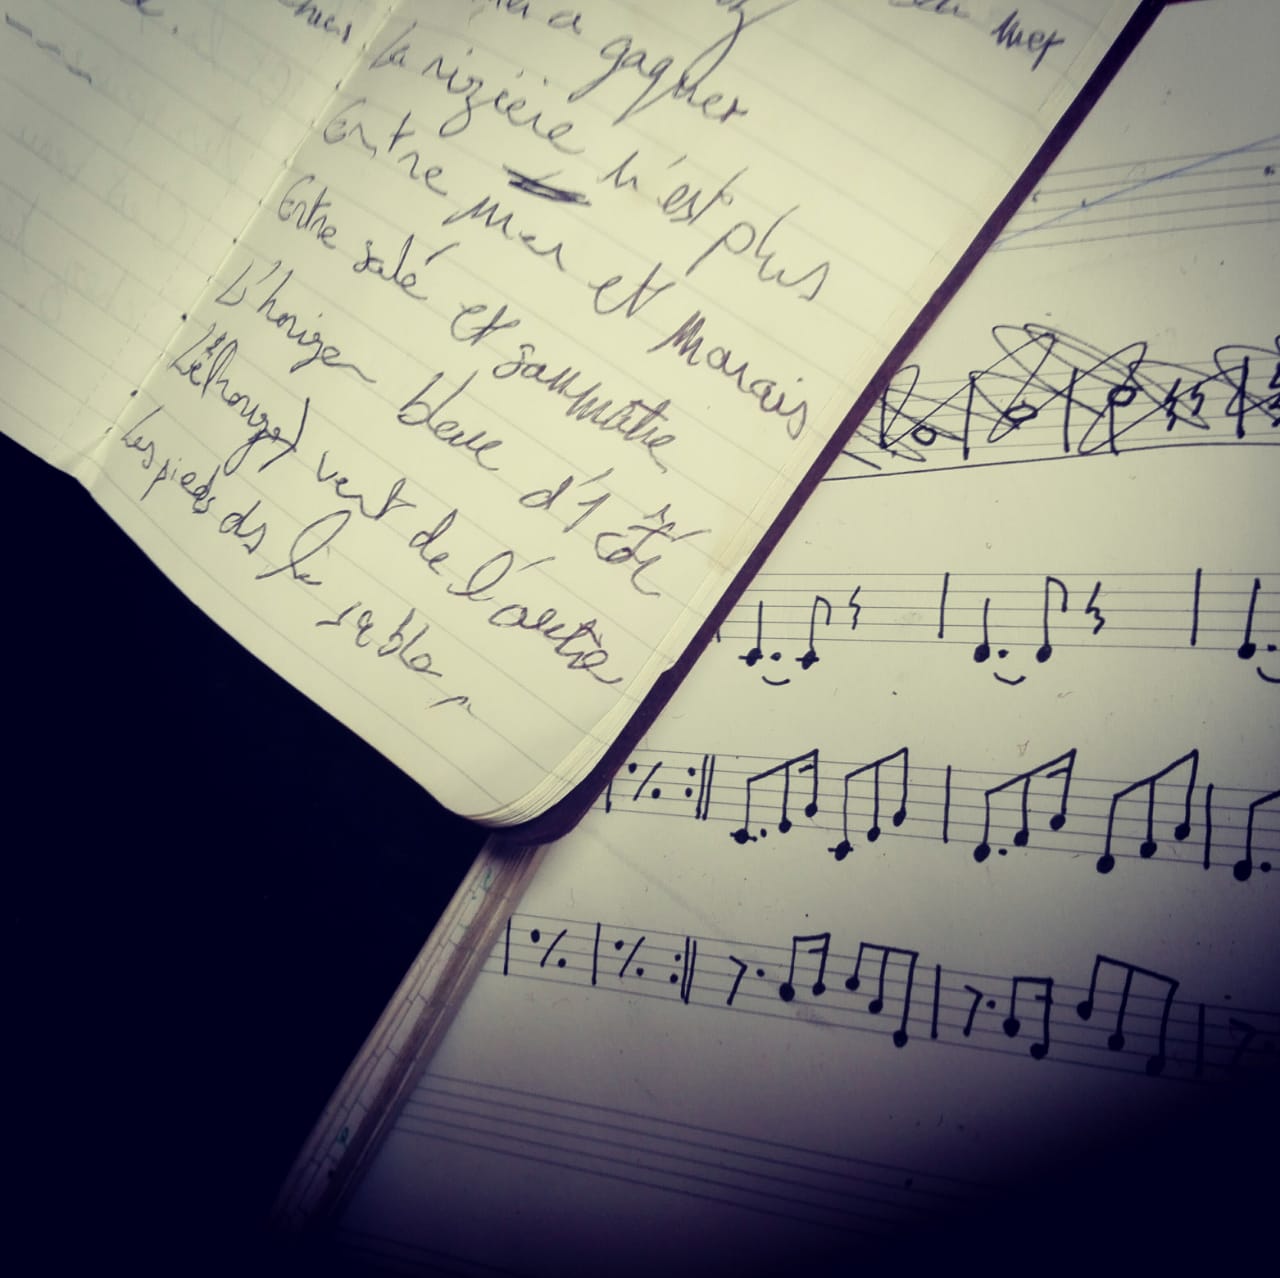 a gagner
la rizière n'est plus
Entre mer et marais
Entre salé et saumâtre
L'horizon bleue d'1 côté
vert de l'autre
Les pieds ds le sable